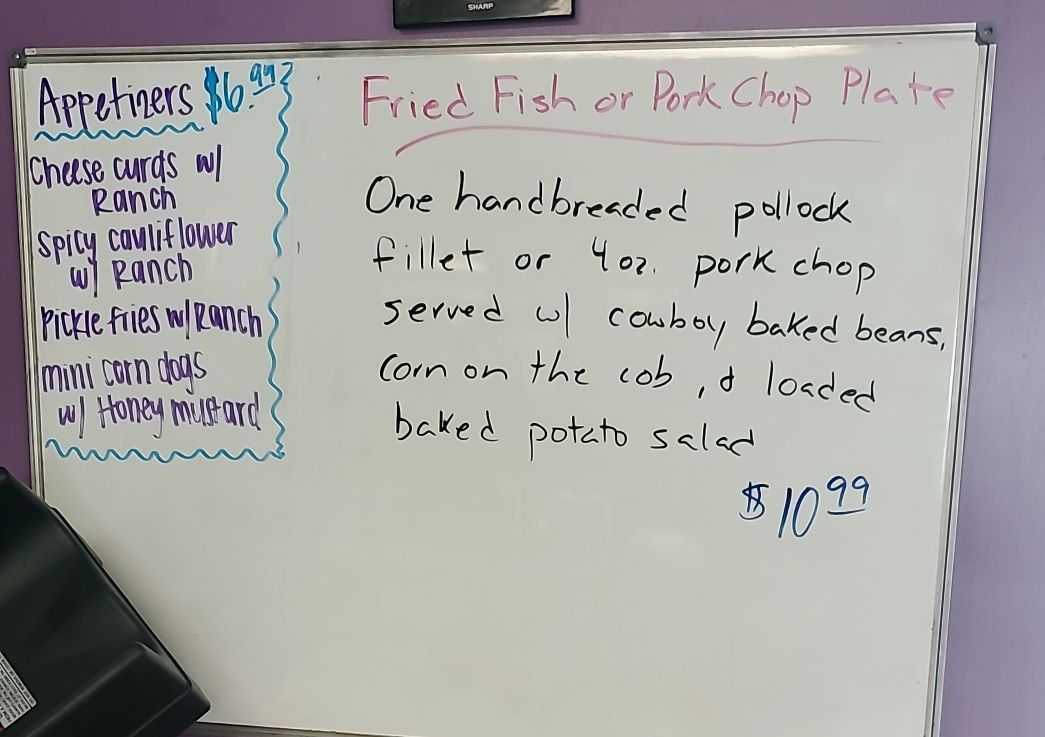 SHARP
Appetizers $6.99
Cheese curds w/
Ranch
Spicy cauliflower
w/ Ranch
Pickle fries w/Ranch
mini corn dogs
w/ Honey mustard
Fried Fish or Pork Chop Plate
One handbreaded pollock
fillet or 4 oz. pork chop
served w/ cowboy baked beans,
corn on the cob, & loaded
baked potato salad
$10 99